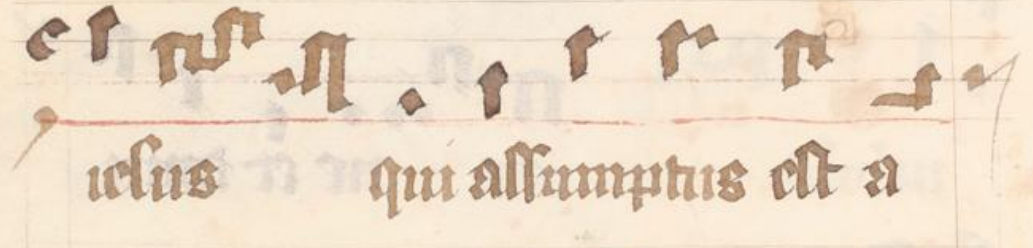 iesus qui assumptus est a